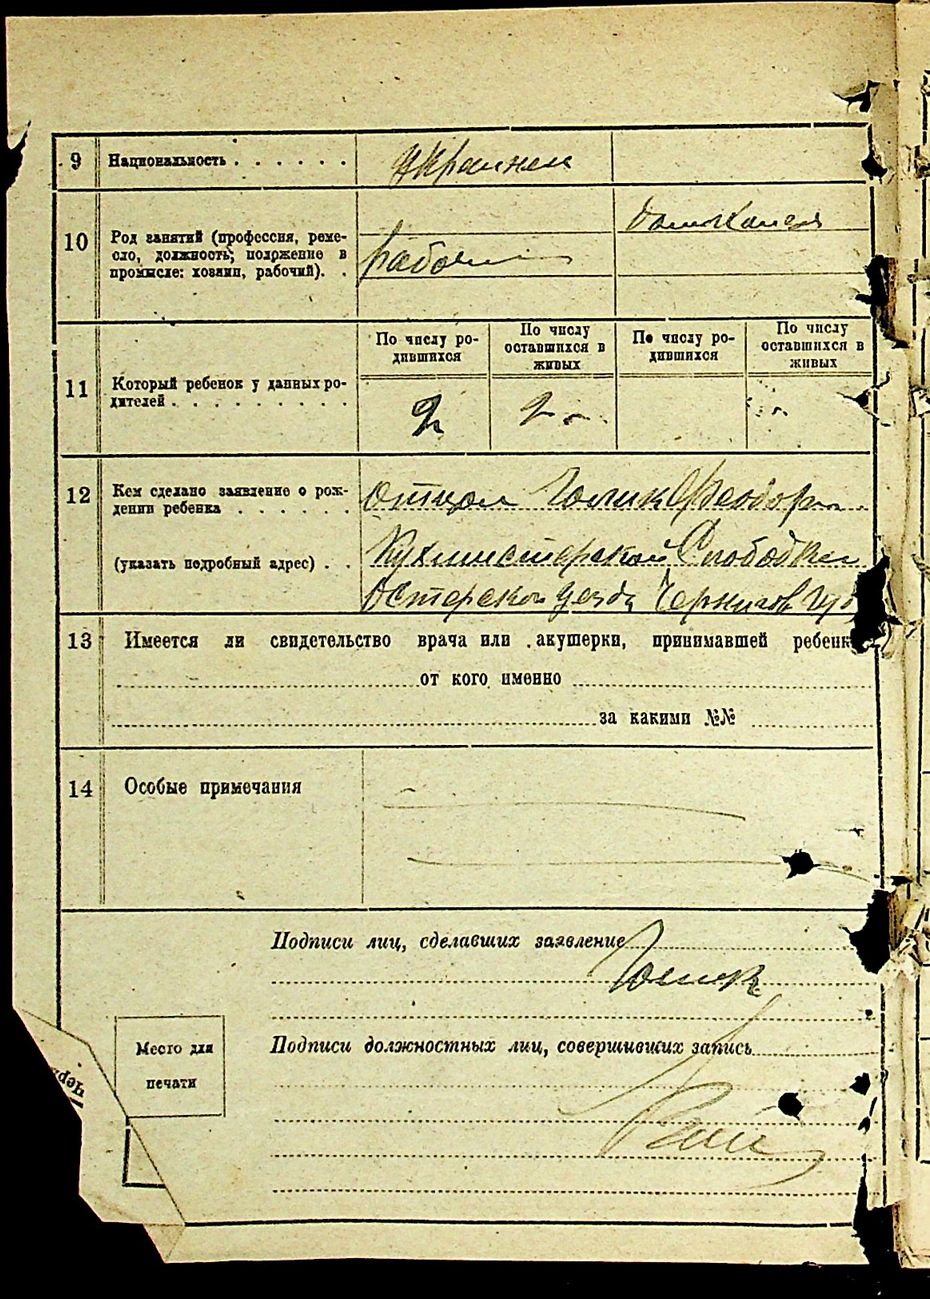 9 Национальность . . . . . . Украинец
10 Род занятий (профессия, реме-
сло, должность; положение в
промысле: хозяин, рабочий). .
рабочий
домохозяй
11 Который ребенок у данных ро-
дителей . . . . . . . . .
По числу ро-
дившихся
По числу
оставшихся в
живых
По числу ро-
дившихся
По числу
оставшихся в
живых
2 2
12 Кем сделано заявление о рож-
дении ребенка . . . . . .
(указать подробный адрес) . .
отцом Голик Феодор
Кухмистерской Слободки
Остерского уезда Чернигов губ
13 Имеется ли свидетельство врача или акушерки, принимавшей ребенка
от кого именно
за какими №№
14 Особые примечания
Подписи лиц, сделавших заявление
Голик
Место для
печати
Подписи должностных лиц, совершивших запись